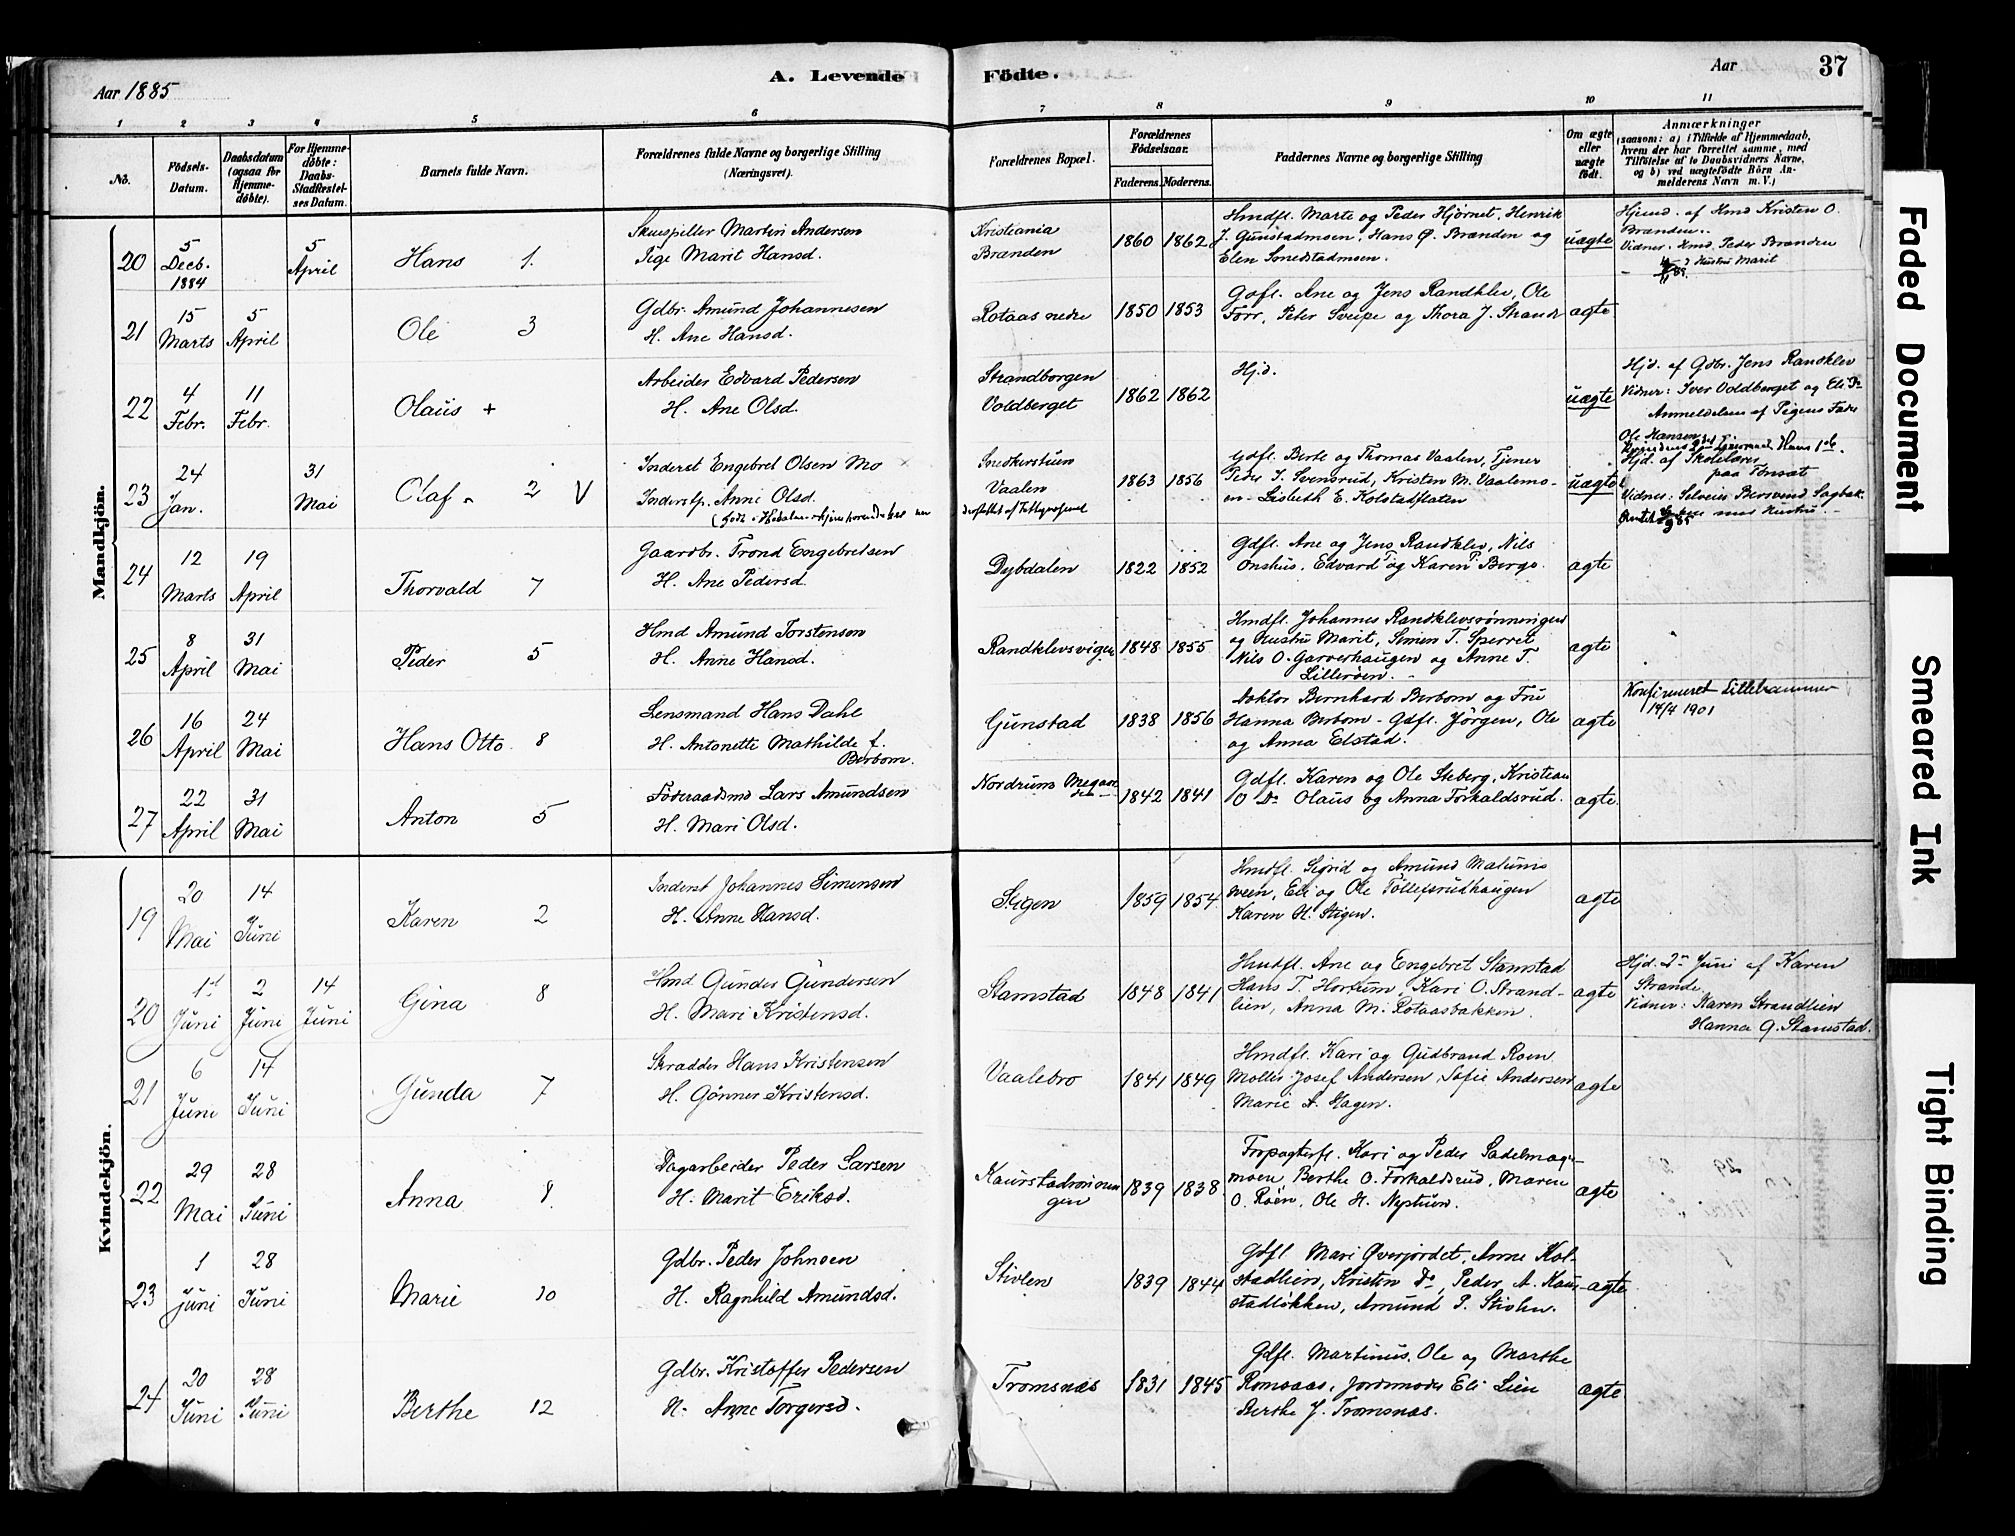 Aar 1885
A. Levende
Födte.
Aar
37
1 2 3 4 5 6 7 8 9 10 11
No.
Födsels-Datum.
Daabsdatum (ogsaa for Hjemme-døbte).
For Hjemme-døbte: Daabs-Stadfæstel-ses Datum.
Barnets fulde Navn.
Forældrenes fulde Navne og borgerlige Stilling (Næringsvei).
Forældrenes Bopæl.
Forældrenes Födselsaar.
Faderens. Moderens.
Faddernes Navne og borgerlige Stilling
Om ægte eller uægte födt.
Anmærkninger
(saasom: a) i Tilfælde af Hjemmedaab, hvem der har forrettet samme, med Tilföielse af to Daabsvidners Navne, og b) ved uægtefödte Börn An-melderens Navn m.V.)
Mandkjön.
20
5 Decb. 1884
5 April
Hans 1.
Skuespiller Martin Andersen
Pige Marit Hansd.
Kristiania
Brænden
1860 1862
Hmdfl. Marte og Peder Hjørnet, Henrik
J. Gunstadmoen, Hans Ø. Brænden og
Elen Smedstadmoen.
uægte
Hjemd. af Hmd Kristen O.
Brænden.
Vidner. Hmd. Peder Brænden
Hustru Marit
21
15 Marts
5 April
Ole 3
Gdbr. Amund Johannesen
H. Ane Hansd.
Rotaas nedre
1850 1853
Gdfl. Ane og Jens Randklev, Ole
Forr, Peter Sveipe og Thora J. Strande
ægte
22
4 Febr.
11 Febr.
Olaüs +
Arbeider Edvard Pedersen
H. Ane Olsd.
Strandborgen
Voldberget
1862 1862
Hjd.
uægte
Hjd. af Gdbr. Jens Randklev
Vidner: Iver Voldberget og Eli
Anmeldelsen af Pigens Fader
Ole Hansen
23
24 Jan.
31 Mai
Olaf 2 V
Inderst Engebret Olsen Mo
Inderstp. Anne Olsd.
Snedkerstuen
Vaalen
1863 1856
Gdfl. Berte og Thomas Vaalen, Tjener
Peder S. Svensrud, Kristen M. Vaalemo-
en - Lisbeth E. Kolstadflaten
uægte
Hjd. af Skolelærer
paa Tønsæt
Vidner: Selveier Bersvend Sagbak-
ken med Hustru.
24
12 Marts
19 April
Thorvald 7
Gaardbr. Trond Engebretsen
H. Ane Pedersd.
Dybdalen
1822 1852
Gdfl. Ane og Jens Randklev, Nils
Onshus, Edvard og Karen P. Berge.
ægte
25
8 April
31 Mai
Peder 5
Hmd Amund Torstensen
H. Anne Hansd.
Randklevsvigen
1848 1855
Hmdfl. Johannes Randklevsrønningen
og Hustru Marit, Simen T. Sperret
Nils O. Garverhaugen og Anne T.
Lillerøen.
ægte
26
16 April
24 Mai
Hans Otto. 8
Lensmand Hans Dahl
H. Antonette Mathilde f.
Berbom.
Gunstad
1838 1856
Doktor Bernhard Berbom og Frü
Hanna Berbom - Gdfl. Jörgen, Ole
og Anna Elstad.
ægte
Konfirmeret Lillehammer
14/4 1901
27
22 April
31 Mai
Anton 5
Føderaadsmd Lars Amundsen
H. Mari Olsd.
Nordrum
1842 1841
Gdfl. Karen og Ole Steberg, Kristian
O Do Olaus og Anna Forkaldsrud.
ægte
Kvindekjön.
19
20 Mai
14 Juni
Karen 2
Inderst Johannes Simensen
H. Anne Hansd.
Stigen
1859 1854
Hmdfl. Sigrid og Amund Matunis
sveen, Eli og Ole Tollefsrudhaugen
Karen H. Stigen.
ægte
20
1ste Juni
2 Juni
14 Juni
Gina 8
Hmd Gunder Gundersen
H. Mari Kristensd.
Stamstad
1848 1841
Hmdfl. Ane og Engebret Stamstad
Hans T. Hortum, Kari O. Strand-
lien, Anna M. Rotaasbakken.
ægte
Hjd. 2n Juni af Karen
Strande
Vidner: Karen Strandlien
Hanna G. Stamstad.
21
6 Juni
14 Juni
Gunda 7
Skrædder Hans Kristensen
H. Gønner Kristensd.
Vaalebro
1841 1849
Hmdfl. Kari og Gudbrand Roen
Møller Josef Andersen, Sofie Andersen
Marie A. Hagen.
ægte
22
29 Mai
28 Juni
Anna 8
Dagarbeider Peder Larsen
H. Marit Eriksd.
Kaurstadrønnin
gen
1839 1838
Forpagterfl. Kari og Peder Sadelmager-
moen, Berthe O. Forkaldsrud, Maren
O. Röen, Ole H. Neptun.
ægte
23
1 Juni
28 Juni
Marie 10
Gdbr. Peder Johnsen
H. Ragnhild Amundsd.
Stivlen
1839 1844
Gdfl. Mari Øverjordet, Anne Kol-
stadlien, Kristen Do, Peder A. Kaur-
stadløkken, Amund P. Stivlen.
ægte
24
20 Juni
28 Juni
Berthe 12
Gdbr. Kristoffer Pedersen
H. Anne Torgersd.
Tromsnæs
1831 1845
Gdfl. Martinus, Ole og Marthe
Romsaas, Jordmoder Eli Lien
Berthe J. Tromsnæs.
ægte
Faded Document
Smeared Ink
Tight Binding